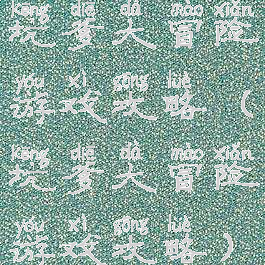 kēng diē dà mào xiǎn
坑爹大冒险
yóu xì gōng lüè
游戏攻略（
kēng diē dà mào xiǎn
坑爹大冒险
yóu xì gōng lüè
游戏攻略）